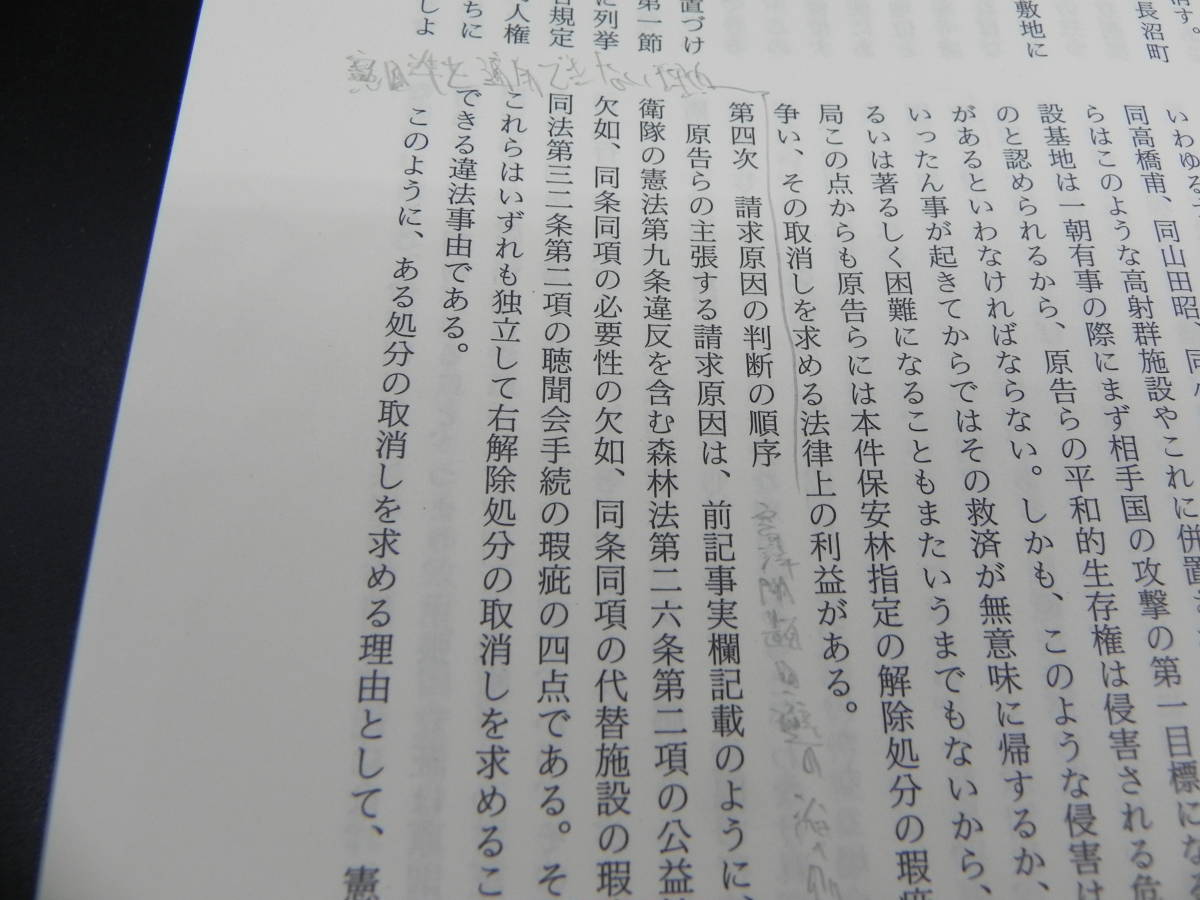 いわゆる
同高橋甫、同山田昭、同
らはこのような高射群施設やこれに併置
設基地は一朝有事の際にまず相手国の攻撃の第一目標になる
のと認められるから、原告らの平和的生存権は侵害される危
があるといわなければならない。しかも、このような侵害は
いったん事が起きてからではその救済が無意味に帰するか、
るいは著るしく困難になることもまたいうまでもないから、
局この点からも原告らには本件保安林指定の解除処分の瑕疵
争い、その取消しを求める法律上の利益がある。
第四次　請求原因の判断の順序
原告らの主張する請求原因は、前記事実欄記載のように、
衛隊の憲法第九条違反を含む森林法第二六条第二項の公益
欠如、同条同項の必要性の欠如、同条同項の代替施設の瑕
同法第三二条第二項の聴聞会手続の瑕疵の四点である。そ
これらはいずれも独立して右解除処分の取消しを求めるこ
できる違法事由である。
このように、ある処分の取消しを求める理由として、憲
長沼町
敷地に
置づけ
第一節
に列挙
規定
人権
ちに
しよ